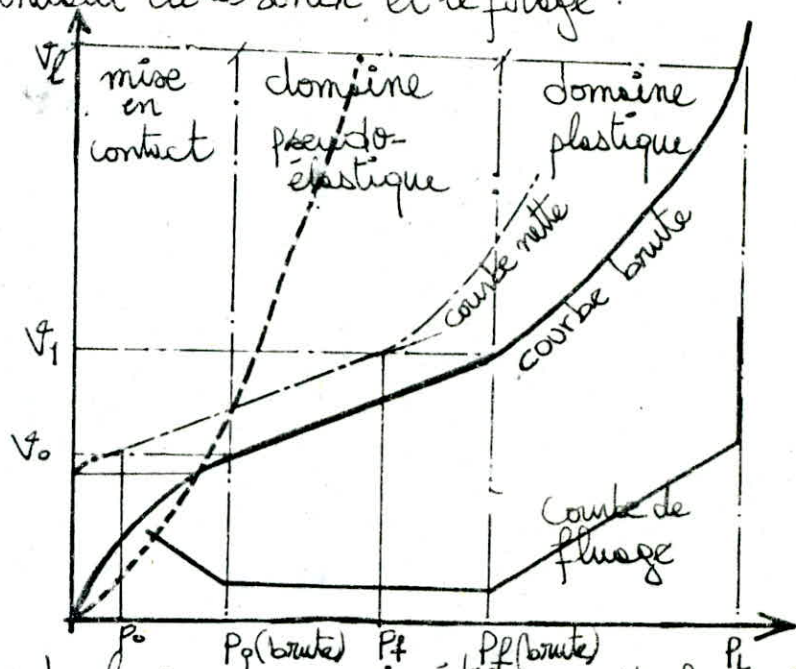 et le fluage.
vl
mise
en
contact
domaine
pseudo-
élastique
domaine
plastique
courbe nette
courbe brute
v1
v0
courbe de
fluage
p0
P0 (brute)
Pf
Pf (brute)